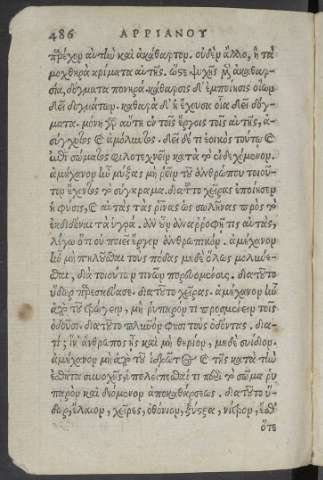 486 ΑΡΡΙΑΝΟΥ
παρέχον αὐτὴν καὶ ἀκάθαρτον. οὐδὲν ἄλλο, ἢ τὰ
μοχθηρὰ κρίματα αὐτῆς. ὥστε ψυχῆς μὲν ἀκαθαρ-
σία, δόγματα πονηρά. κάθαρσις δ' ἐμποίησις οἵων
δεῖ δογμάτων. καθαρὰ δ' ἡ ἔχουσα οἷα δεῖ δόγ-
ματα. μόνη γὰρ αὕτη ἐν τοῖς ἔργοις τοῖς αὐτῆς, ἀ-
σύγχυτος καὶ ἀμόλυντος. δεῖ δέ τι ἐοικὸς τούτῳ καὶ
ἐπὶ σώματος φιλοτεχνεῖν κατὰ τὸ ἐνδεχόμενον.
ἀμήχανον ἦν μύξας μὴ ῥεῖν τοῦ ἀνθρώπου τοιοῦ-
τον ἔχοντος τὸ σύγκραμα. διὰ τοῦτο χεῖρας ἐποίησεν
ἡ φύσις, καὶ αὐτὰς τὰς ῥῖνας ὡς σωλῆνας πρὸς τὸ
ἐκδιδόναι τὰ ὑγρά. ἂν οὖν ἀναρροφῇ τις αὐτάς,
λέγω ὅτι οὐ ποιεῖ ἔργον ἀνθρωπικόν. ἀμήχανον
ἦν μὴ πηλοῦσθαι τοὺς πόδας μηδὲ ὅλως μολύνε-
σθαι, διὰ τοιούτων τινῶν πορευομένους. διὰ τοῦτο
ὕδωρ παρεσκεύασε. διὰ τοῦτο χεῖρας. ἀμήχανον ἦν
ἀπὸ τοῦ τρώγειν, μὴ ῥυπαρόν τι προσμένειν τοῖς
ὀδοῦσι. διὰ τοῦτο πλῦνόν φησι τοὺς ὀδόντας. δια-
τί; ἵν' ἄνθρωπος ᾖς καὶ μὴ θηρίον, μηδὲ συΐδιον.
ἀμήχανον μὴ ἀπὸ τοῦ ἱδρῶτος καὶ τῆς κατὰ τὴν
ἐσθῆτα συνοχῆς, ὑπολείπεσθαί τι περὶ τὸ σῶμα ῥυ
παρὸν καὶ δεόμενον ἀποκαθάρσεως. διὰ τοῦτο ὕ-
δωρ, ἔλαιον, χεῖρες, ὀθόνιον, ξύστρα, νίτρον, ἔσθ'
ὅτε